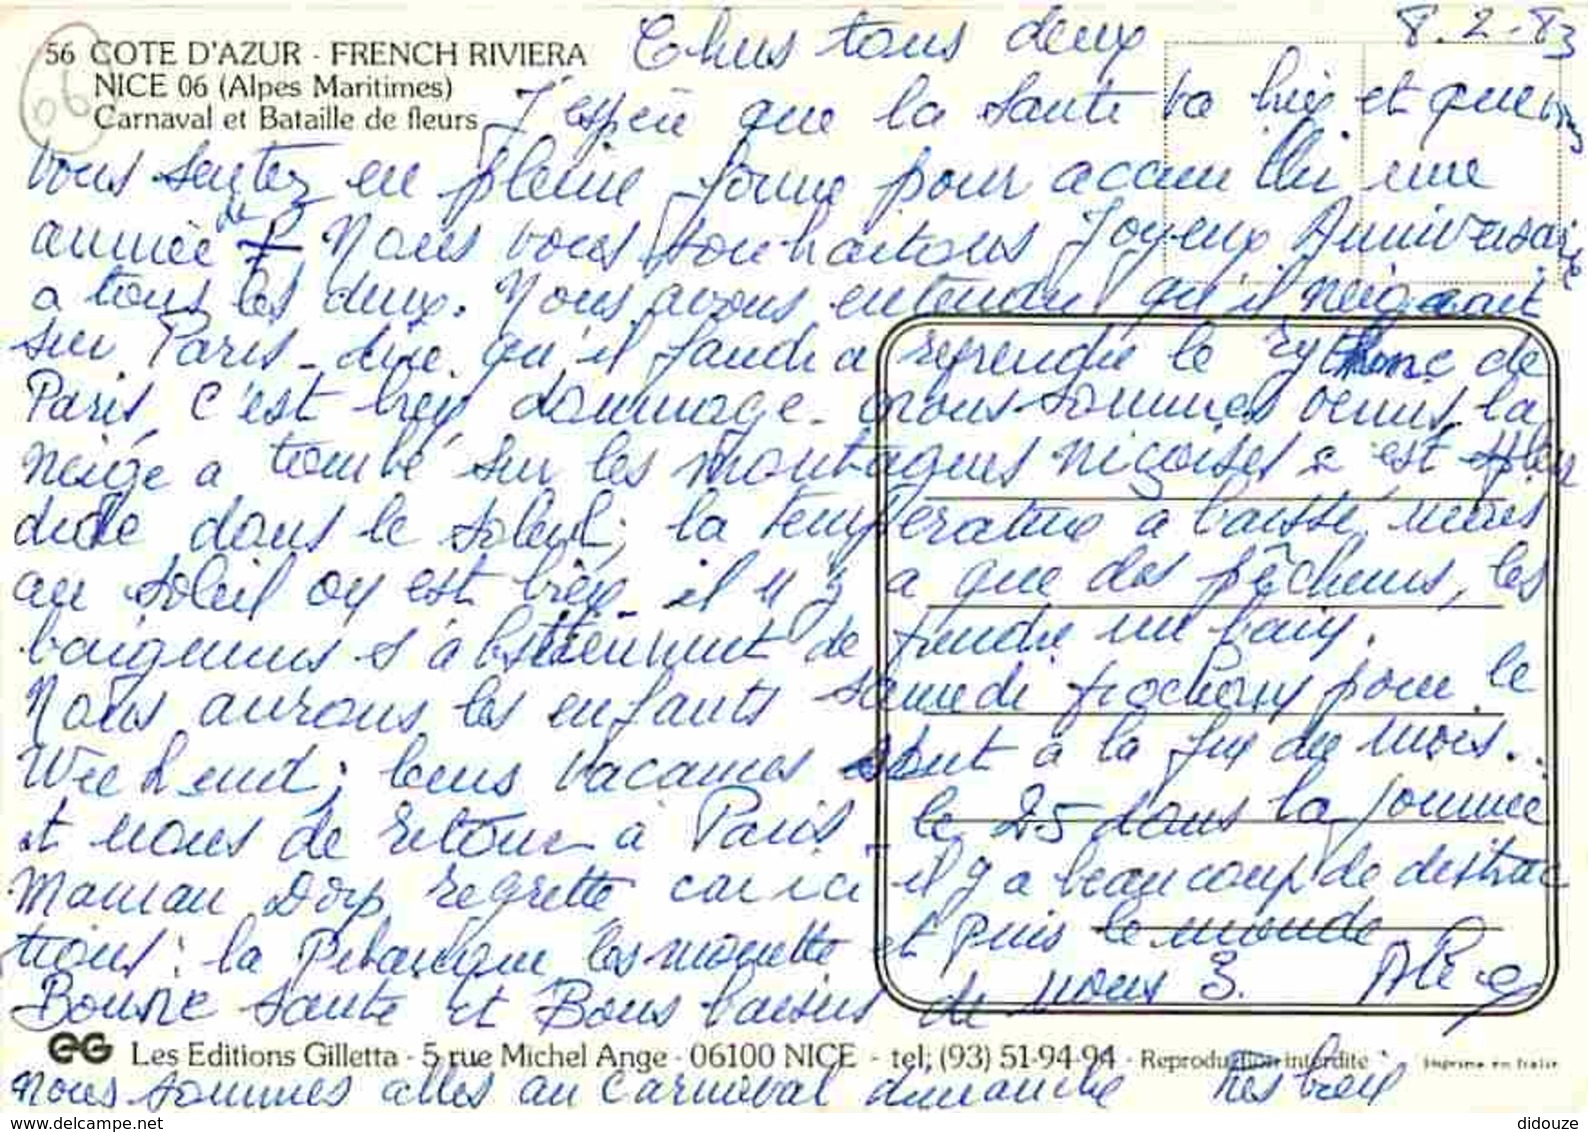 56 COTE D'AZUR - FRENCH RIVIERA
NICE 06 (Alpes Maritimes)
Carnaval et Bataille de fleurs
06
8.2-83
Chers tous deux
J'espère que la santé va bien et que vous
vous sentez en pleine forme pour accueillir une
année de + Nous vous souhaitons Joyeux Anniversaire
a tous les deux. Nous avons entendu qu'il neigeait
sur Paris - dire qu'il faudra reprendre le rythme de
Paris, c'est bien dommage - nous sommes venus, la
neige a tombé sur les montagnes niçoises c'est splen
dide dans le soleil; la température a baissé, mais
au soleil on est bien - il n'y a que des pêcheurs, les
baigneurs s'abstiennent de prendre un bain.
Nous aurons les enfants samedi prochain pour le
Week end; leurs vacances sont à la fin du mois..
et nous de retour à Paris - le 25 dans la journée
Maman Dop regrette car ici il y a beaucoup de distrac
tions: la Pétanque les mouette et puis le monde
Bonne santé et Bons baisers de nous 3.
Nous sommes allés au Carnaval dimanche très bien
EG Les Editions Gilletta - 5 rue Michel Ange - 06100 NICE - tel; (93) 51-94-94 - Reproduction interdite
Imprimé en Italie
delcampe.net
didouze